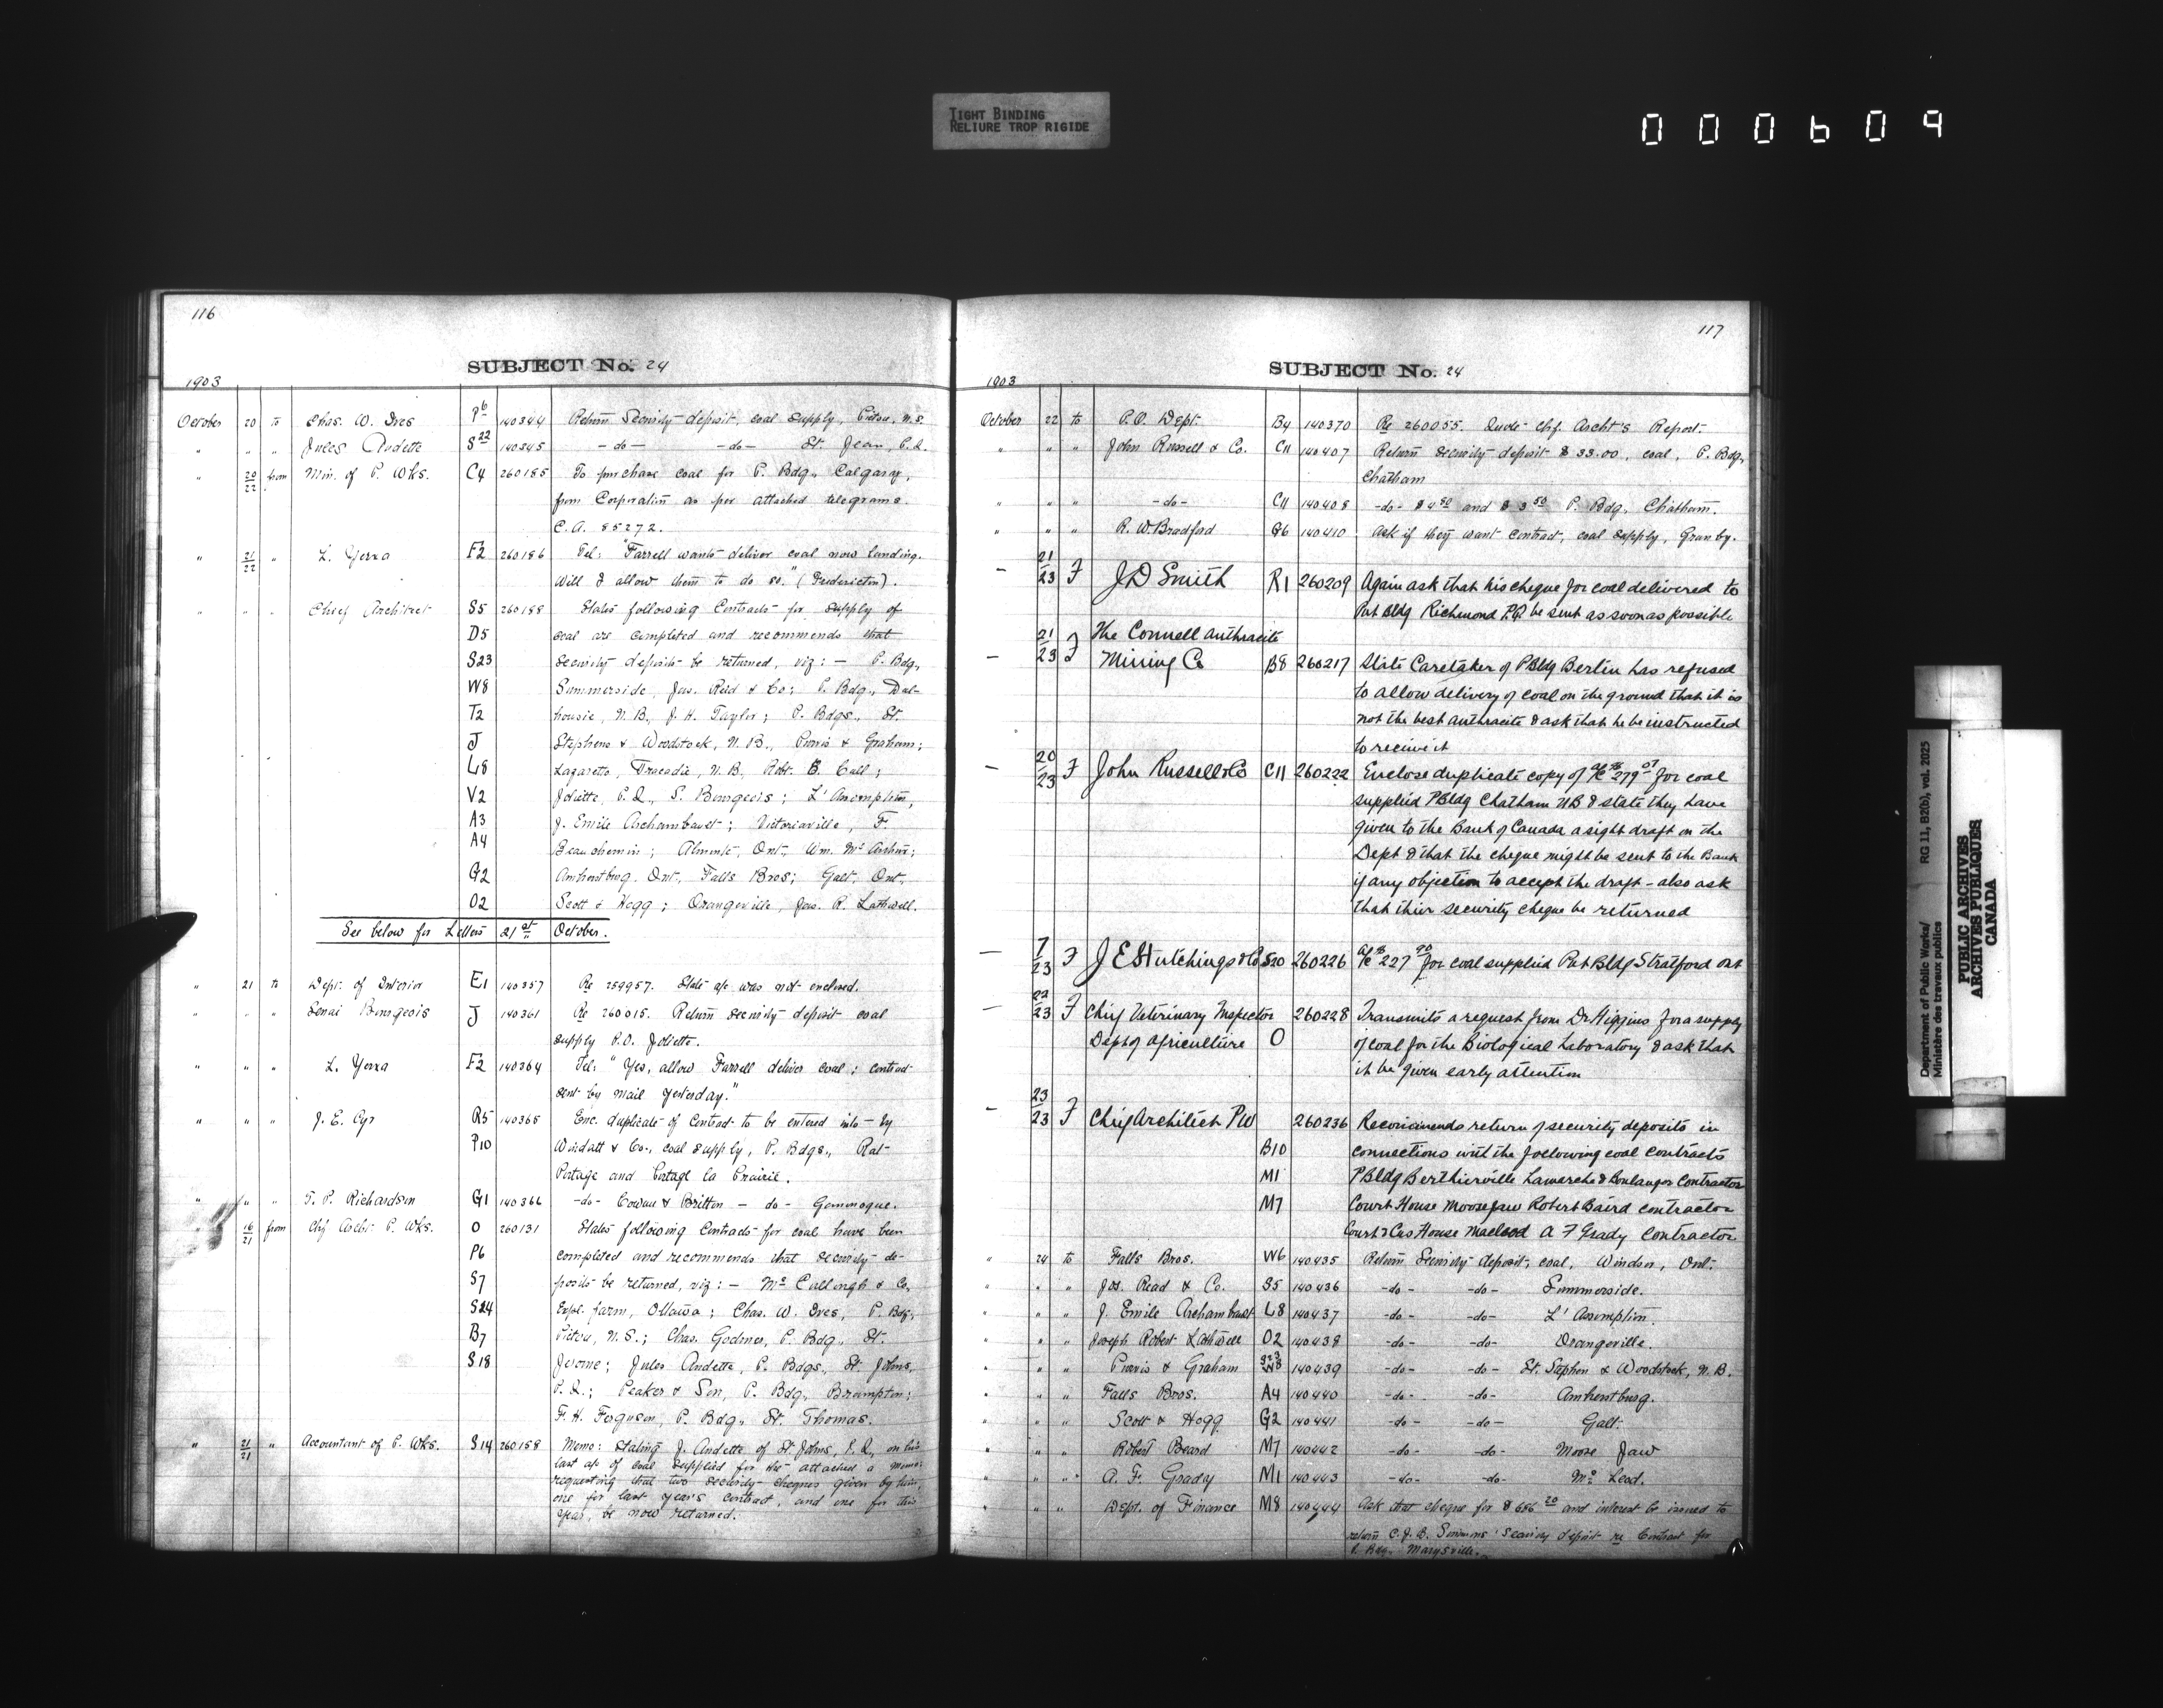 TIGHT BINDING
RELIURE TROP RIGIDE
000609
116
SUBJECT No. 24
1903
October 20 to Chas. W. Ives P6 140344 Return Security deposit, coal supply, Pictou, N.S.
" " " Jules Audette S22 140345 -do- -do- St. Jean, P.Q.
" 20/22 from Min. of P. Wks. C4 260185 To purchase coal for P. Bdg., Calgary,
from Corporation as per attached telegrams.
C.A. 85272.
" 21/22 " L. Yerxa F2 260186 Tel: "Farrell wants deliver coal now landing.
Will I allow them to do so." (Fredericton).
" " " Chief Architect S5 260188 States following Contracts for supply of
D5 coal are completed and recommends that
S23 security deposits be returned, viz: — P. Bdg.,
W8 Summerside, Jas. Reid & Co; P. Bdg., Dal-
T2 housie, N.B., J. H. Taylor; P. Bdgs., St.
J Stephens & Woodstock, N.B., Purvis & Graham;
L8 Lazaretto, Tracadie, N.B., Robt. B. Call;
V2 Joliette, P.Q., S. Bourgeois; L'Assomption,
A3 J. Emile Archambault; Victoriaville, F.
A4 Beauchemin; Almonte, Ont., Wm. McArthur;
G2 Amherstburg, Ont., Falls Bros; Galt, Ont.,
O2 Scott & Hogg; Orangeville, Jos. R. Lathwell.
See below for Letters 21st October.
" 21 to Dept. of Interior E1 140357 Re 259957. State a/c was not enclosed.
" " " Senai Bourgeois J 140361 Re 260015. Return security deposit coal
supply P.O. Joliette.
" " " L. Yerxa F2 140364 Tel: "Yes, allow Farrell deliver coal; contract
sent by mail yesterday."
" " " J. E. Cyr R5 140365 Enc. duplicate of Contract to be entered into by
P10 Windatt & Co., coal supply, P. Bdgs., Rat-
Portage and Portage la Prairie.
" " " S. P. Richardson G1 140366 -do- Cowan & Britton -do- Gananoque.
" 16/21 from Chf Archt. P. Wks. O 260131 States following Contracts for coal have been
P6 completed and recommends that security de-
S7 posits be returned, viz: — McCullough & Co,
S24 Expl. farm, Ottawa; Chas. W. Ives, P. Bdg.,
B7 Pictou, N.S.; Chas. Godmer, P. Bdg., St.
S18 Jerome; Jules Audette, P. Bdgs., St. Johns,
P.Q.; Peaker & Son, P. Bdg., Brampton;
F. H. Ferguson, P. Bdg., St. Thomas.
" 21/21 " Accountant of P. Wks. S14 260158 Memo: Stating J. Audette of St. Johns, P.Q., on his
last a/c of coal supplied for the attached a memo:
requesting that two security cheques given by him,
one for last year's contract, and one for this
year, be now returned.
117
SUBJECT No. 24
1903
October 22 to P.O. Dept. B4 140370 Re 260055. Quote Chf. Archt's Report.
" " " John Russell & Co. C11 140407 Return security deposit $33.00, coal, P. Bdg,
Chatham
" " " -do- C11 140408 -do- $4.80 and $3.50 P. Bdg, Chatham.
" " " R. W. Bradford G6 140410 Ask if they want contract, coal supply, Granby.
— 21/23 F J D Smith R1 260209 Again ask that his cheque for coal delivered to
Pub Bldg Richmond P.Q. be sent as soon as possible
— 21/23 F The Connell Anthracite
Mining Co B8 260217 State Caretaker of P Bldg Berlin has refused
to allow delivery of coal on the ground that it is
not the best anthracite & ask that he be instructed
to receive it
— 20/23 F John Russell & Co C11 260222 Enclose duplicate copy of a/c $279.07 for coal
supplied P Bldg Chatham NB & state they have
given to the Bank of Canada a sight draft on the
Dept & that the cheque might be sent to the Bank
if any objection to accept the draft - also ask
that their security cheque be returned
— 7/23 F J E Hutchings & Co S20 260226 a/c $227.90 for coal supplied Pub Bldg Stratford Ont
— 22/23 F Chief Veterinary Inspector 260228 Transmits a request from Dr Higgins for a supply
Dept of Agriculture O of coal for the Biological Laboratory & ask that
it be given early attention
— 23/23 F Chief Architect PW 260236 Recommends return of security deposits in
B10 connections with the following coal contracts
M1 P Bldg Berthierville Lamarche & Boulanger Contractor
M7 Court House Moosejaw Robert Baird contractor
Court & Cus House Macleod A F Grady Contractor
" 24 to Falls Bros. W6 140435 Return Security deposit, coal, Windsor, Ont.
" " " Jos. Read & Co. S5 140436 -do- -do- Summerside.
" " " J. Emile Archambault L8 140437 -do- -do- L'Assomption.
" " " Joseph Robert Lathwell O2 140438 -do- -do- Orangeville.
" " " Purvis & Graham S23 W8 140439 -do- -do- St. Stephen & Woodstock, N.B.
" " " Falls Bros. A4 140440 -do- -do- Amherstburg.
" " " Scott & Hogg G2 140441 -do- -do- Galt.
" " " Robert Beard M7 140442 -do- -do- Moose Jaw
" " " A. F. Grady M1 140443 -do- -do- McLeod.
" " " Dept. of Finance M8 140444 Ask that cheque for $686.20 and interest be issued to
return C. J. B. Simmons' Security deposit re Contract for
P. Bdg. Marysville.
Department of Public Works/
Ministère des travaux publics
RG 11, B2(b), vol. 2025
PUBLIC ARCHIVES
ARCHIVES PUBLIQUES
CANADA